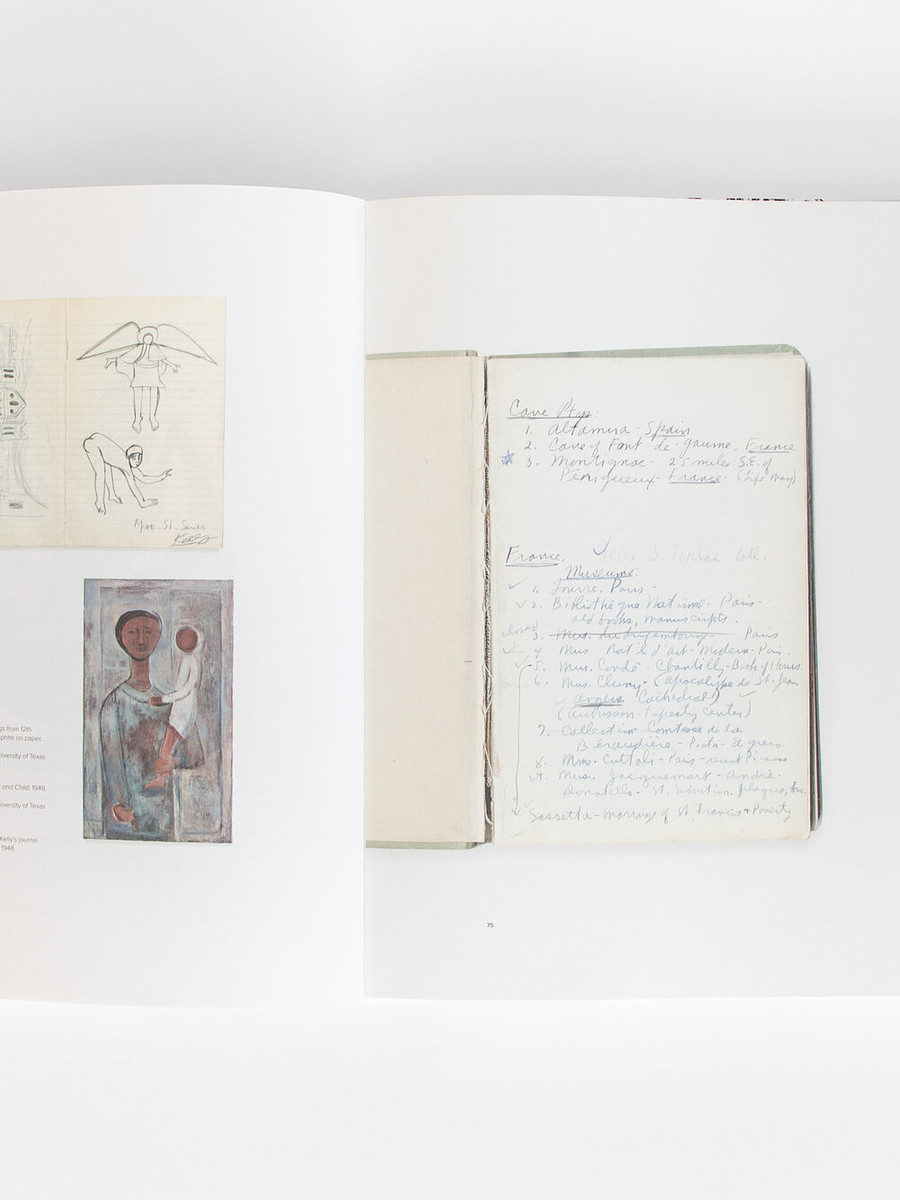 Mus. St. Sever
Kelly
gs from 12th
phite on paper,
iversity of Texas
r and Child, 1949,
iversity of Texas
Kelly's journal
1948
Cave Ptgs
1. Altamira - Spain
2. Cave of Font de - gaume, France
3. Montignac - 25 miles S.E. of
Périgueux - France - (Life Mag)
France. Alice B. Toklas Coll.
Museums:
1. Louvre. Paris -
2. Bibliothèque Nationale - Paris -
old books, manuscripts.
closed
3. Mus. du Luxembourg - Paris
4 Mus Nat'l d'art - Modern - Paris
5. Mus. Condé - Chantilly - Book of Hours.
6. Mus. Cluny - (Apocalypse de St. Jean
Angers Cathedral)
(Aubusson - Tapestry Center)
7. Collection Comtesse de la
Béraudière -
8. Mme. Cuttoli - Paris - recent Picassos
9. Mus. Jacquemart - André -
Donatello - St. Sebastian plaque,
Sassetta - marriage of St. Francis & Poverty
75